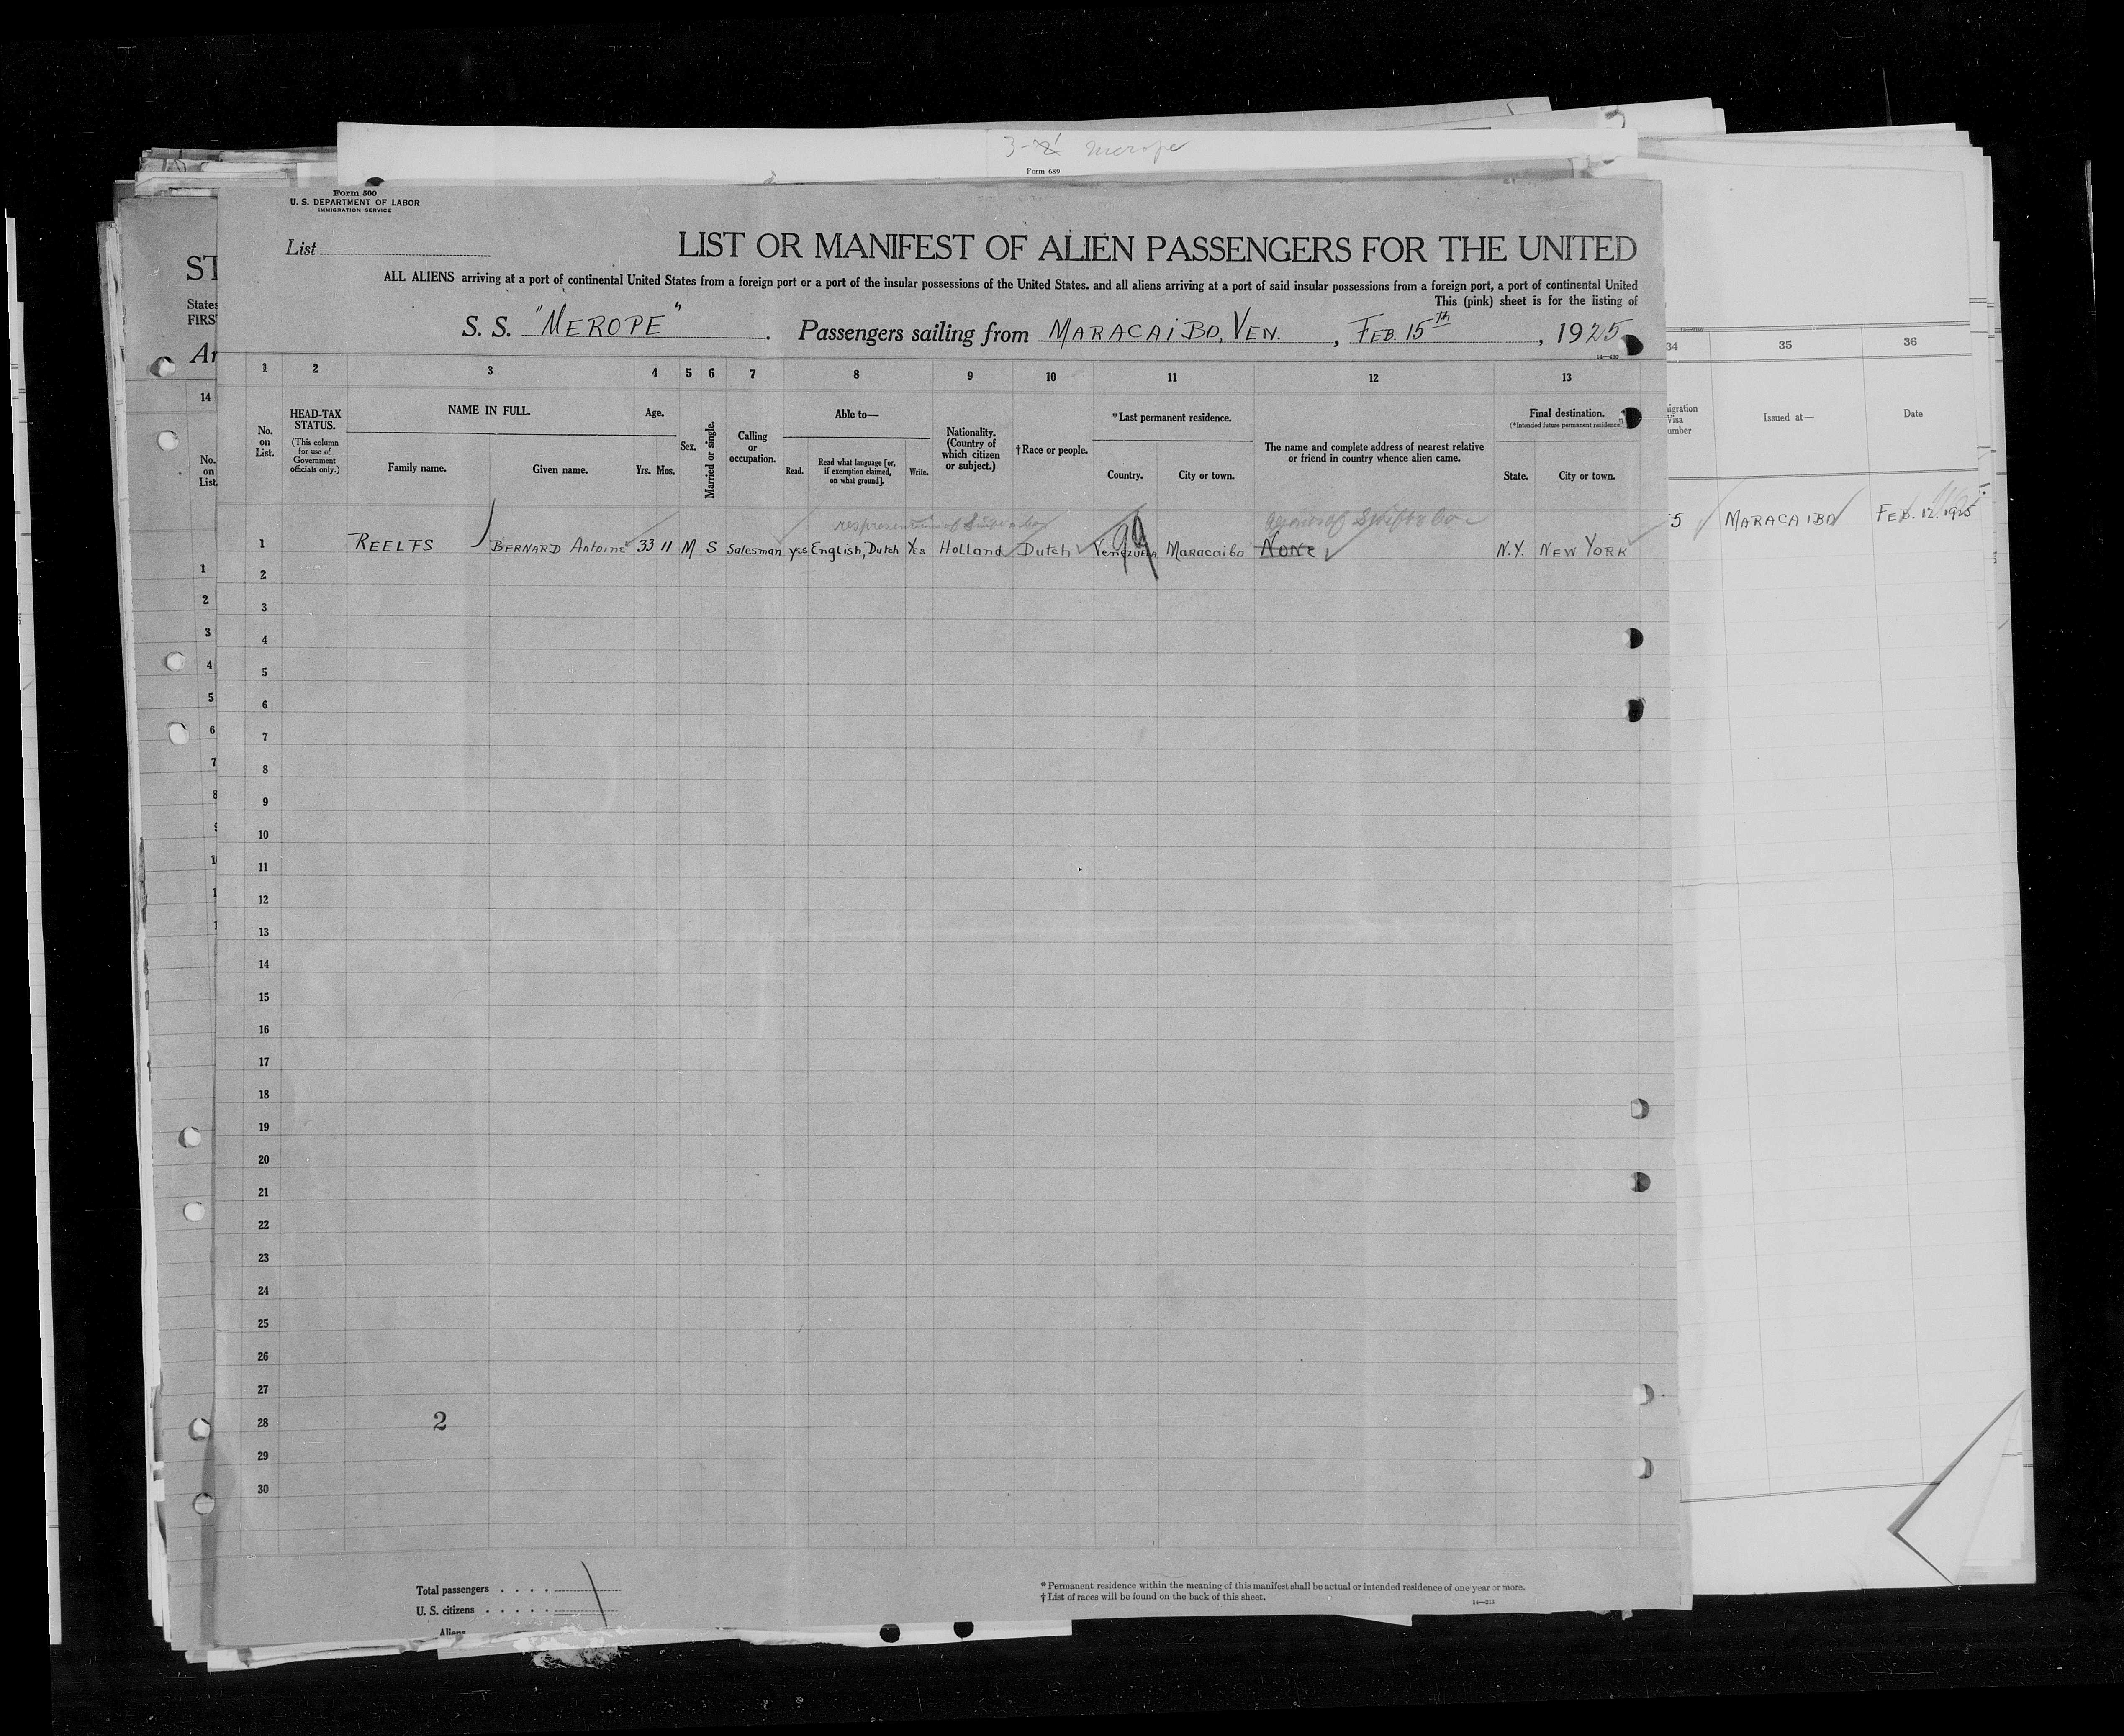 3-2 Merope
Form 689
Form 500
U. S. DEPARTMENT OF LABOR
IMMIGRATION SERVICE
List
LIST OR MANIFEST OF ALIEN PASSENGERS FOR THE UNITED
ALL ALIENS arriving at a port of continental United States from a foreign port or a port of the insular possessions of the United States, and all aliens arriving at a port of said insular possessions from a foreign port, a port of continental United
This (pink) sheet is for the listing of
S. S. "MEROPE". Passengers sailing from MARACAIBO, VEN., FEB. 15th, 1925
ST
States
FIRS
Ar
14
No.
on
List
1 2 3 4 5 6 7 8 9 10 11 12 13
No. on List.
HEAD-TAX STATUS.
(This column for use of Government officials only.)
NAME IN FULL.
Family name. Given name.
Age.
Yrs. Mos.
Sex.
Married or single.
Calling or occupation.
Able to—
Read. Read what language [or, if exemption claimed, on what ground]. Write.
Nationality. (Country of which citizen or subject.)
†Race or people.
*Last permanent residence.
Country. City or town.
The name and complete address of nearest relative or friend in country whence alien came.
Final destination.
(*Intended future permanent residence.)
State. City or town.
34 35 36
Issued at— Date
5 MARACAIBO FEB. 12. 1925
of Swift & Co
1 REELFS BERNARD Antoine 33 11 M S Salesman yes English, Dutch Yes Holland Dutch Venezuela Maracaibo None N.Y. NEW YORK
99
2
3
4
5
6
7
8
9
10
11
12
13
14
15
16
17
18
19
20
21
22
23
24
25
26
27
28 2
29
30
1
2
3
4
5
6
7
8
Total passengers . . . .
U. S. citizens . . . . .
Aliens
* Permanent residence within the meaning of this manifest shall be actual or intended residence of one year or more.
† List of races will be found on the back of this sheet.